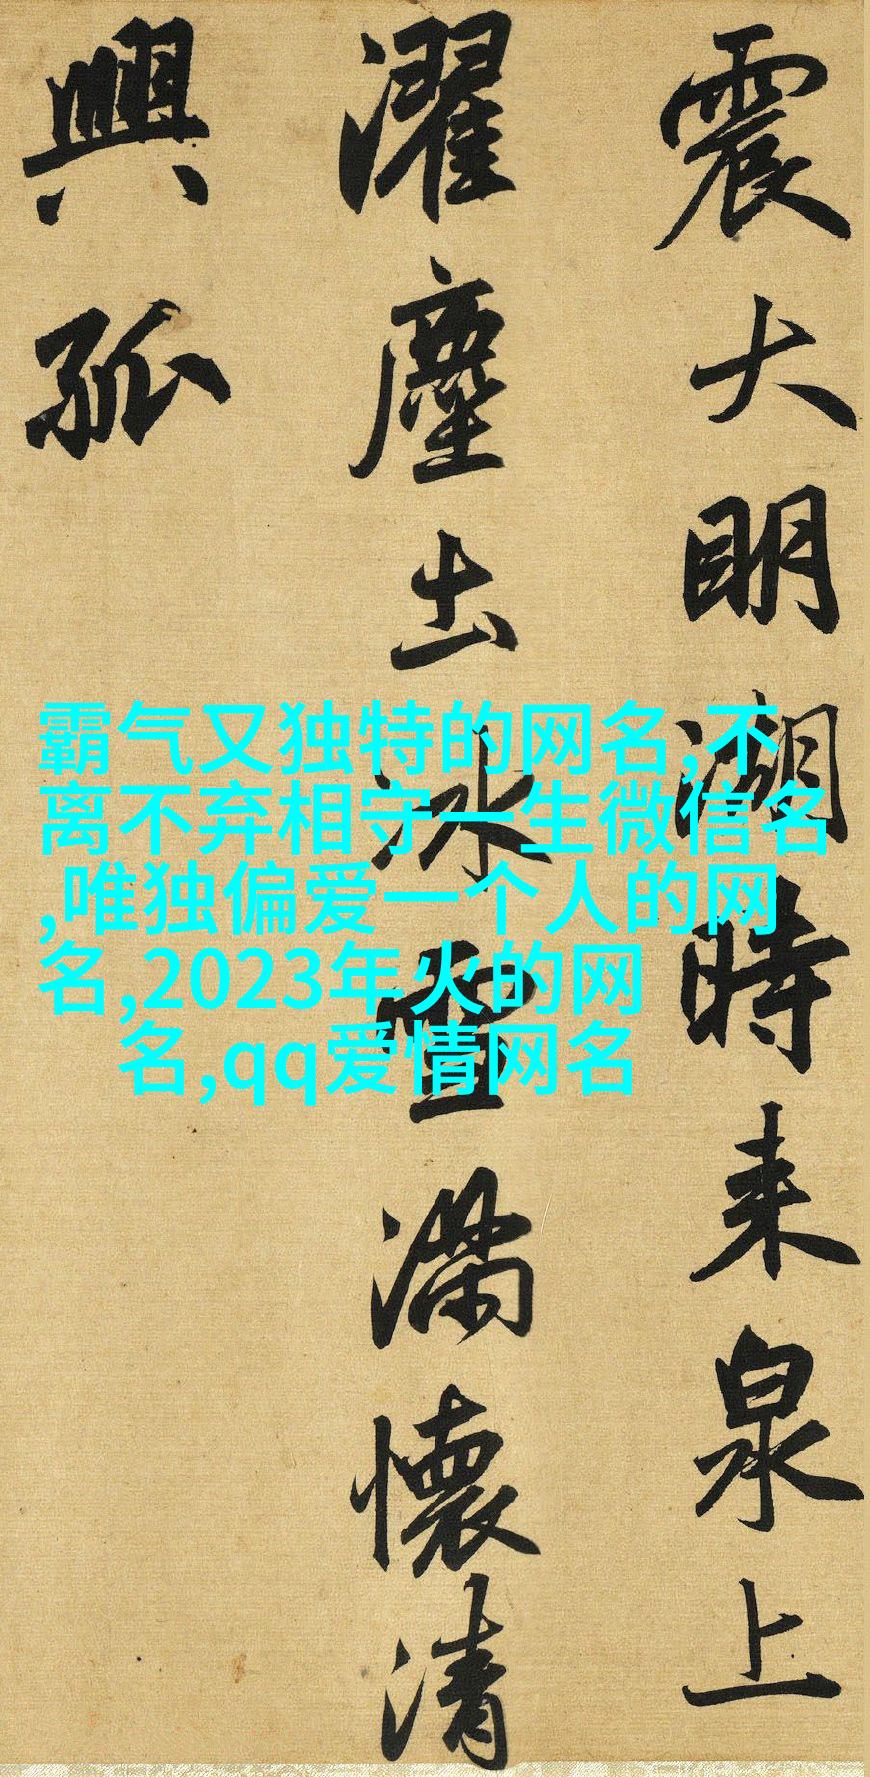 震大明湖時来泉上
濯塵土冰雪滿懷清
興孤
霸气又独特的网名,不
离不弃相守一生微信名
,唯独偏爱一个人的网
名,2023年火的网
名,qq爱情网名